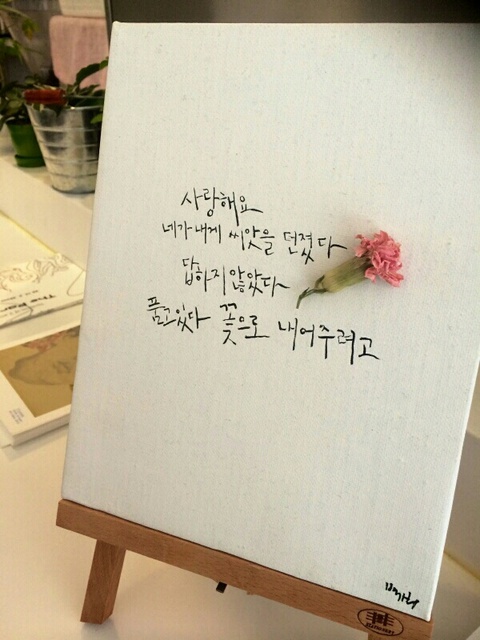 사랑해요
네가 내게 씨앗을 던졌다
답하지 않았다
품고 있다 꽃으로 내어주려고
The